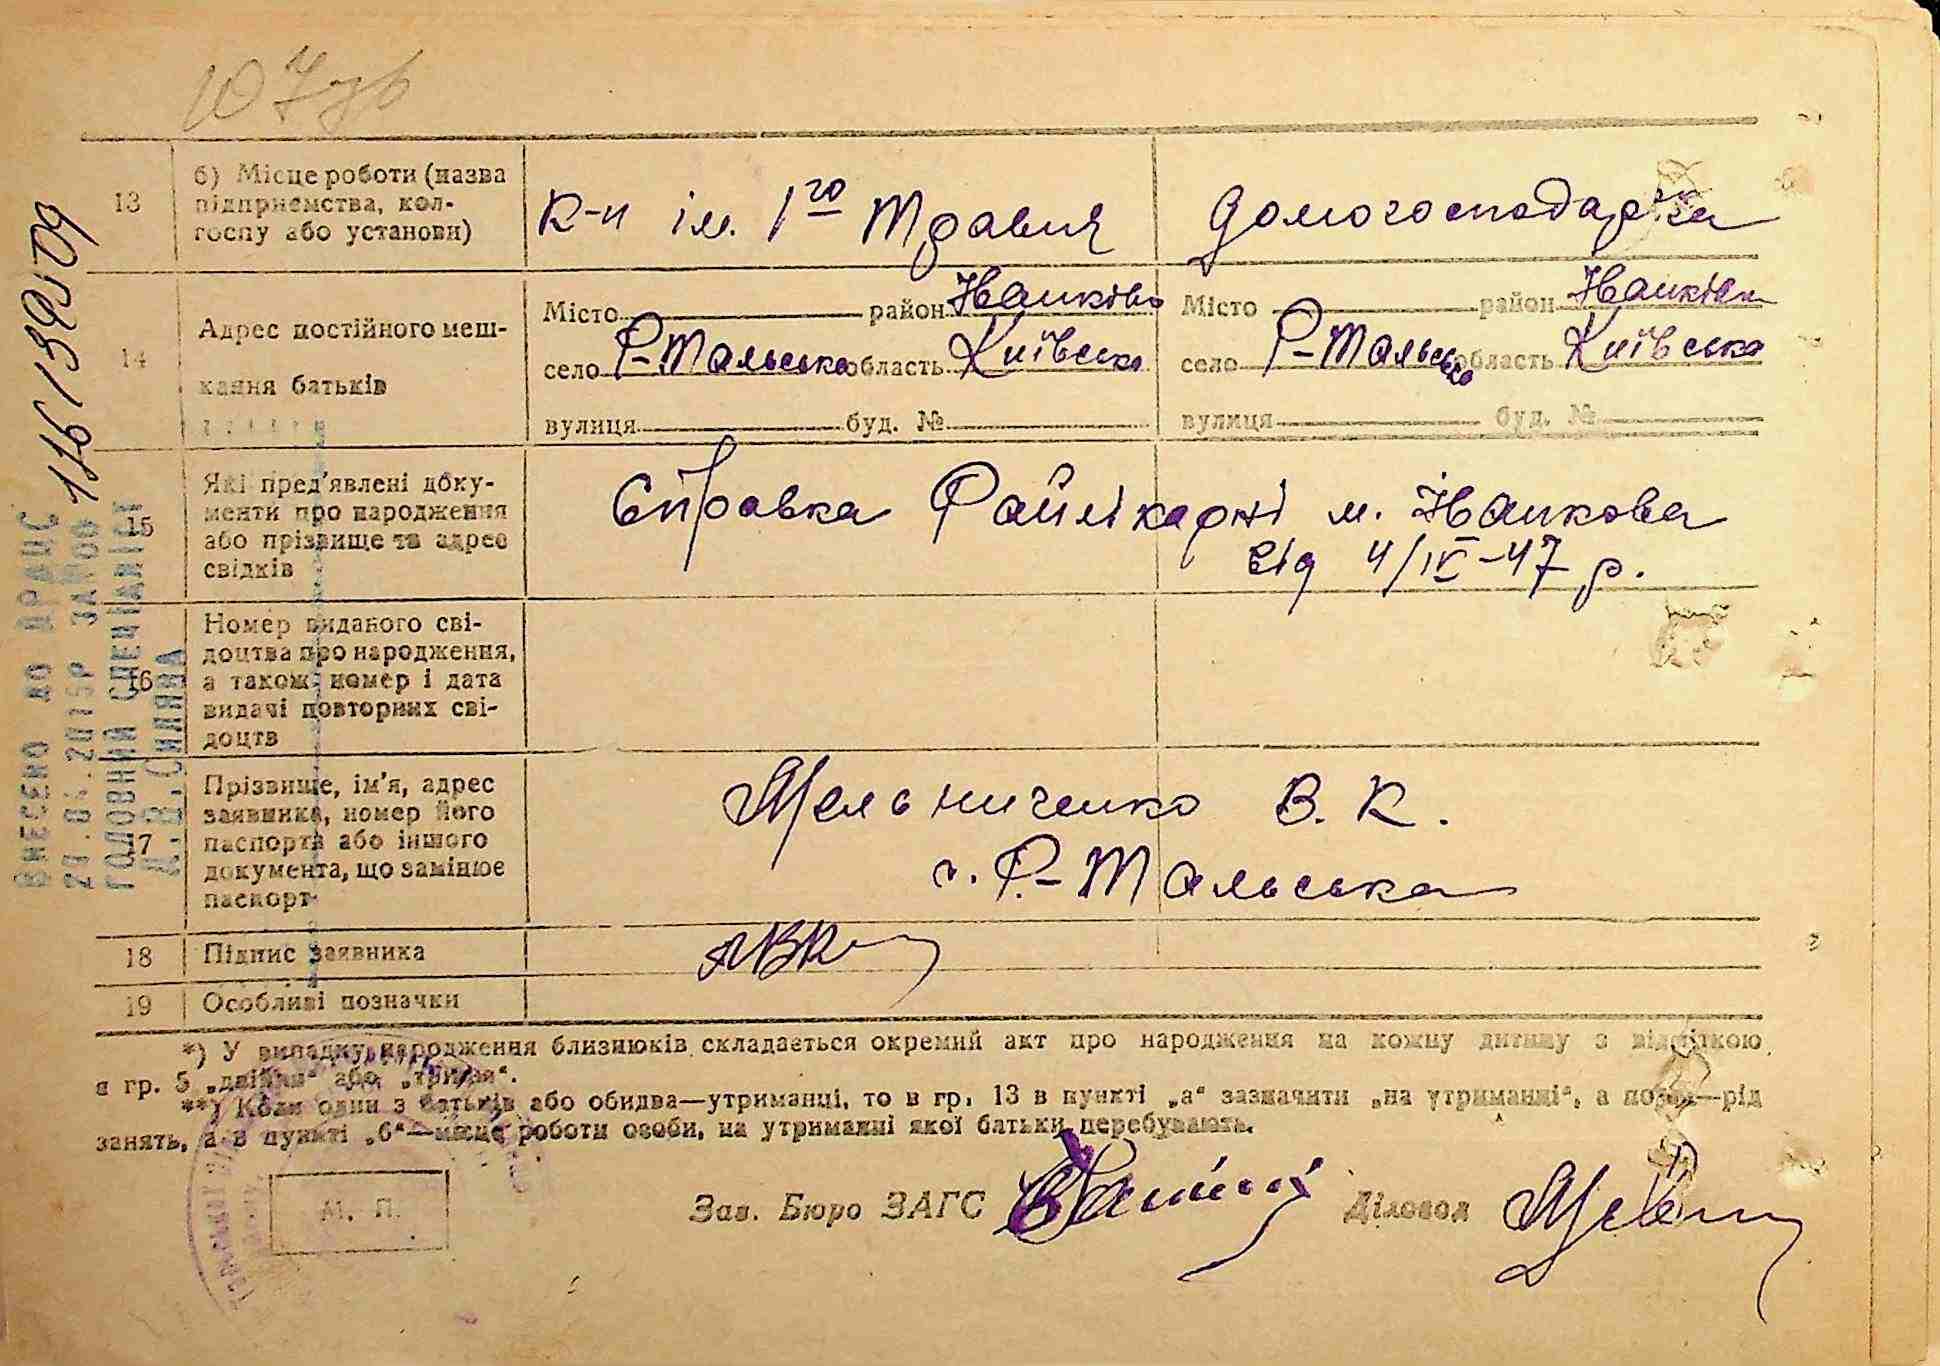 13
б) Місце роботи (назва
підприємства, кол-
госпу або установи)
К-п ім. 1го Травня
Домогосподарка
14
Адрес постійного меш-
кання батьків
Місто район Іванків
село Р-Тальська область Київська
вулиця буд. №
Місто район Іванків
село Р-Тальська область Київська
вулиця буд. №
15
Які пред'явлені доку-
менти про народження
або прізвище та адрес
свідків
Справка Райлікарні м. Іванкова
від 4/IV-47 р.
16
Номер виданого сві-
доцтва про народження,
а також номер і дата
видачі повторних сві-
доцтв
17
Прізвище, ім'я, адрес
заявника, номер його
паспорта або іншого
документа, що замінює
паспорт
Мельниченко В. К.
с. Р-Тальська
18
Підпис заявника
19
Особливі позначки
*) У випадку народження близнюків складається окремий акт про народження на кожну дитину з відміткою
в гр. 5 „двійня“ або „трійня“.
**) Коли один з батьків або обидва—утриманці, то в гр. 13 в пункті „а“ зазначити „на утриманні“, а поз—рід
занять, а в пункті „б“—місце роботи особи, на утриманні якої батьки перебувають.
М. П.
Зав. Бюро ЗАГС
Діловод
ВНЕСЕНО ДО ДРАЦС
ЗА №00
116139509
ГОЛОВНИЙ СПЕЦІАЛІСТ